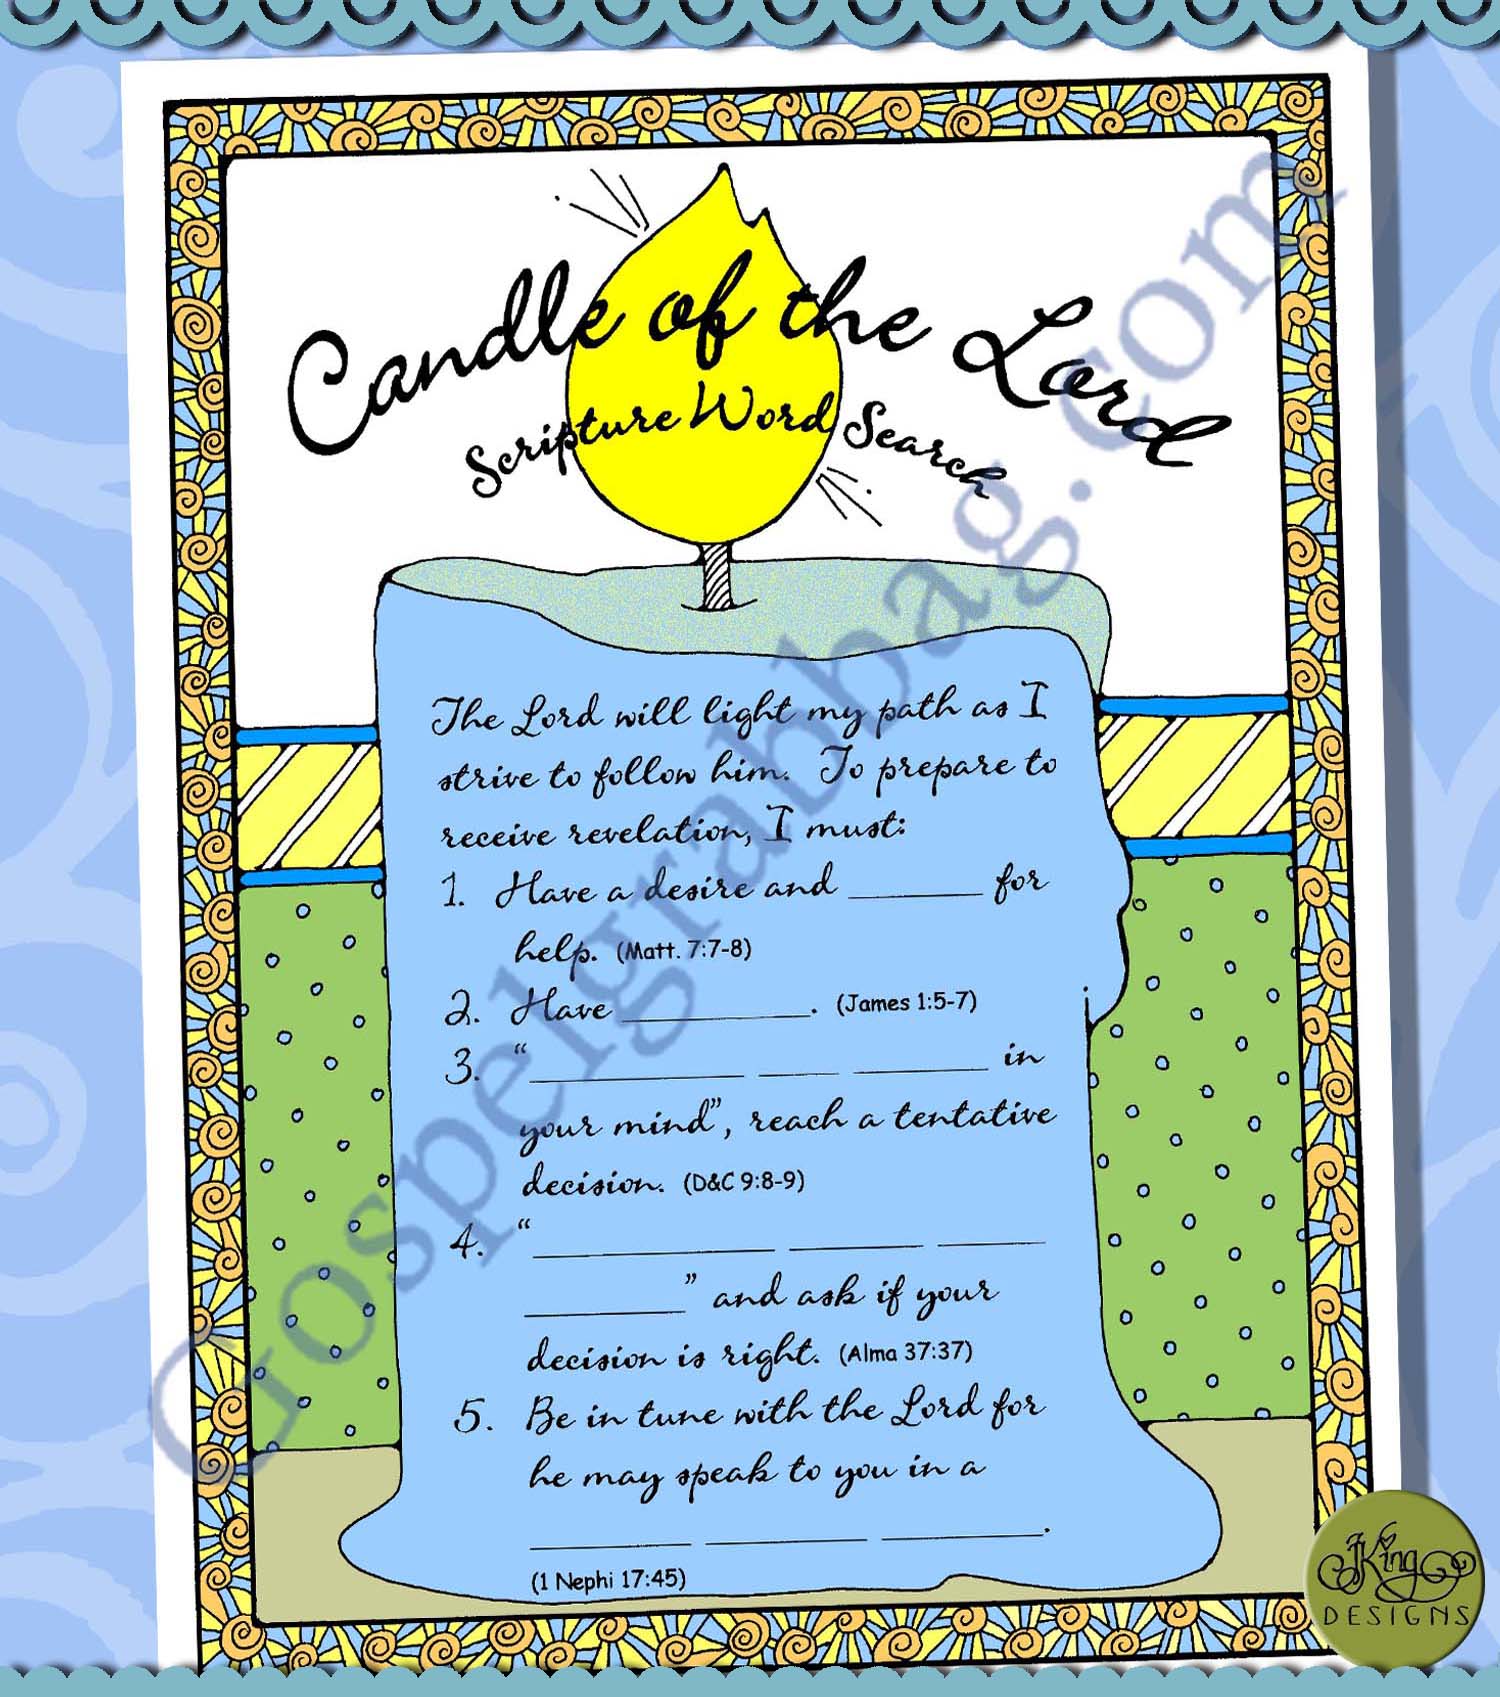 Candle of the Lord
Scripture Word Search
The Lord will light my path as I
strive to follow him. To prepare to
receive revelation, I must:
1. Have a desire and ________ for
help. (Matt. 7:7-8)
2. Have ___________. (James 1:5-7)
3. "_____________ _____ ________ in
your mind", reach a tentative
decision. (D&C 9:8-9)
4. "______________ ________ ______
__________" and ask if your
decision is right. (Alma 37:37)
5. Be in tune with the Lord for
he may speak to you in a
_________ _________ _________.
(1 Nephi 17:45)
Gospelgrabbag.com
JKing
DESIGNS